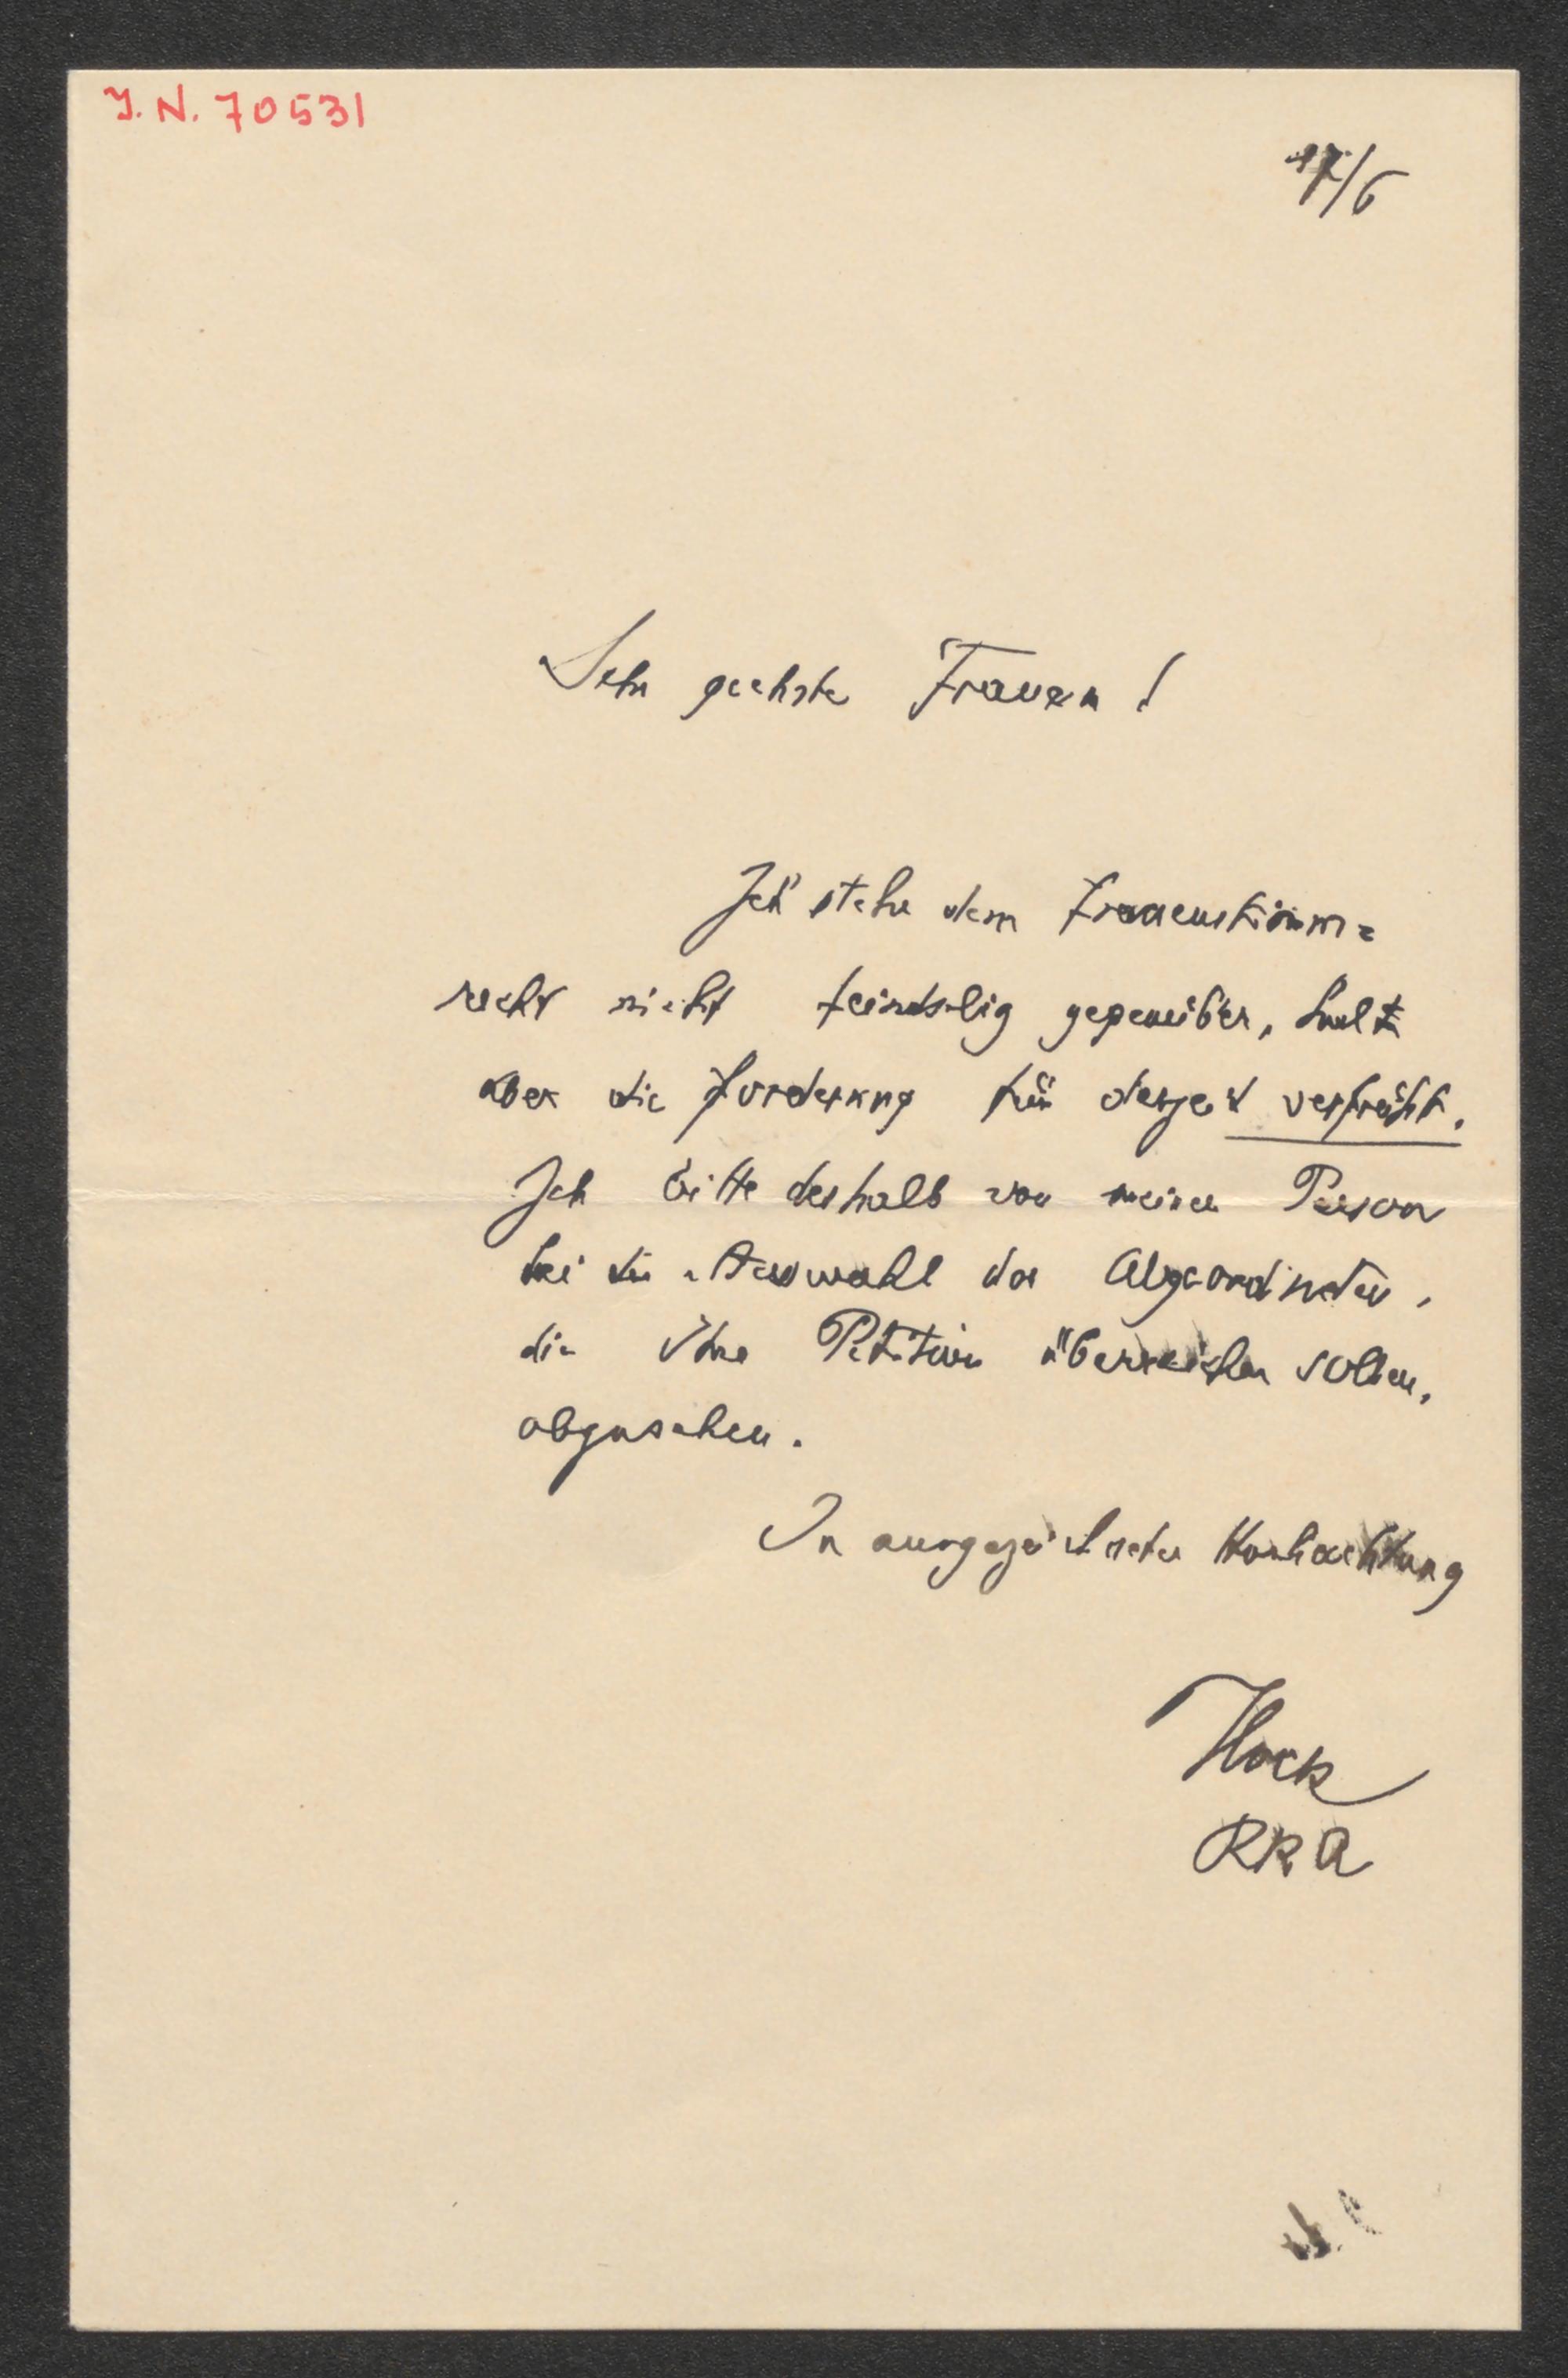 J.N. 70531
17/6
Sehr geehrte Frauen!
Ich stehe dem Frauenstimm=
recht nicht feindselig gegenüber, halte
aber die Forderung für derzeit verfrüht.
Ich bitte deshalb von meiner Person
bei der Auswahl der Abgeordneten,
die Ihre Petition überreichen sollen,
abzusehen.
In ausgezeichneter Hochachtung
Hock
RRA